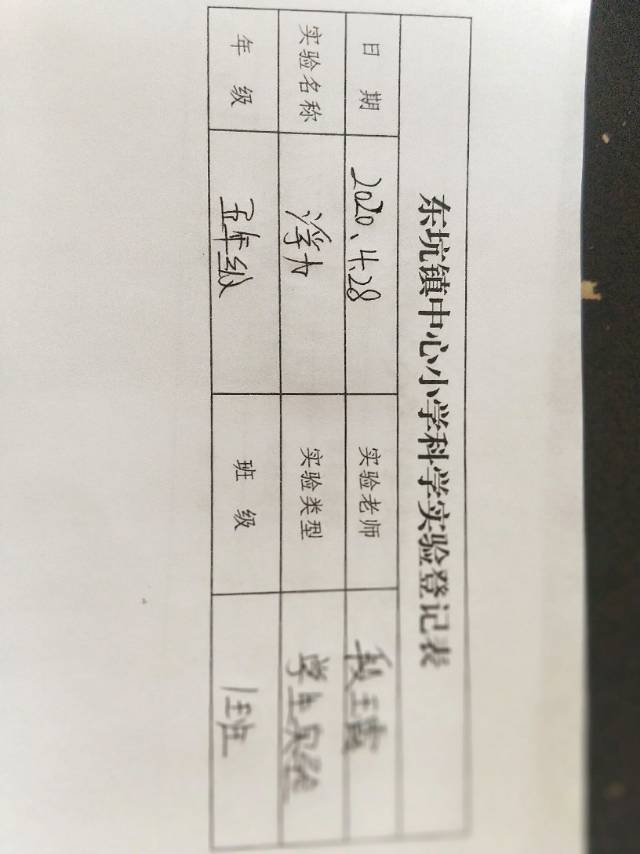 东坑镇中心小学科学实验登记表
日期 2020、4.28 实验老师
实验名称 浮力 实验类型 学生实验
年级 五年级 班级